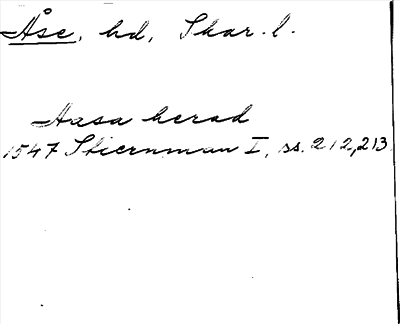 Åse, hd, Skar. l.
Aasa herad
1547 Stiernman I, ss. 212, 213